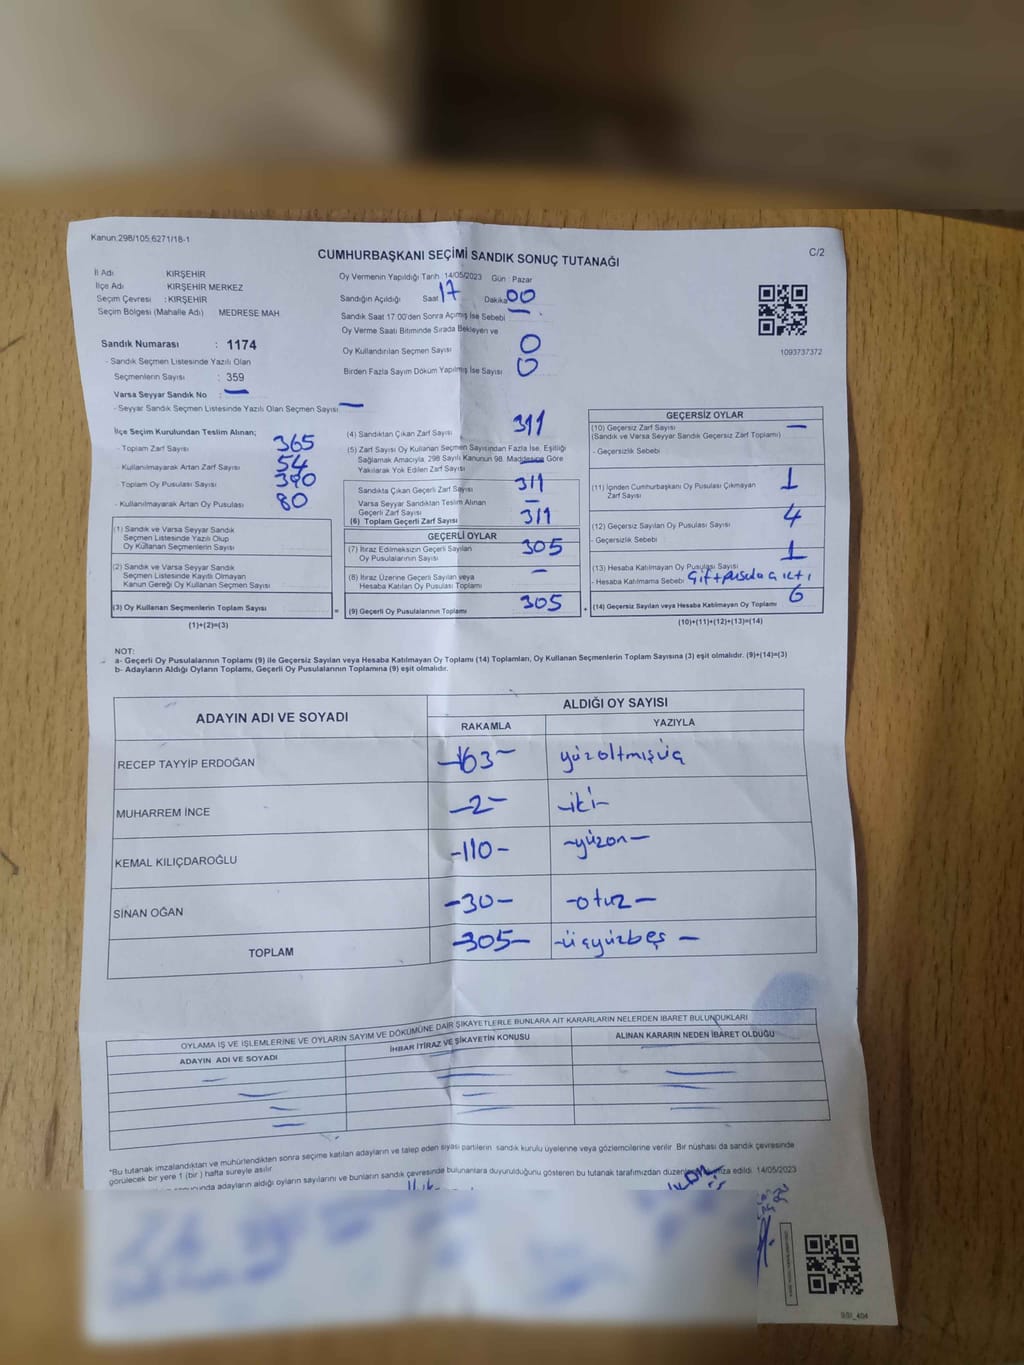 Kanun:298/105,6271/18-1
C/2
CUMHURBAŞKANI SEÇİMİ SANDIK SONUÇ TUTANAĞI
İl Adı KIRŞEHİR
İlçe Adı KIRŞEHİR MERKEZ
Seçim Çevresi : KIRŞEHİR
Seçim Bölgesi (Mahalle Adı) MEDRESE MAH
Oy Vermenin Yapıldığı Tarih 14/05/2023 Gün : Pazar
Sandığın Açıldığı Saat 17 Dakika 00
Sandık Saat 17:00'den Sonra Açımış İse Sebebi —
Oy Verme Saati Bitiminde Sırada Bekleyen ve
Oy Kullandırılan Seçmen Sayısı 0
Birden Fazla Sayım Döküm Yapılmış İse Sayısı 0
1093737372
Sandık Numarası : 1174
- Sandık Seçmen Listesinde Yazılı Olan
Seçmenlerin Sayısı : 359
Varsa Seyyar Sandık No : —
- Seyyar Sandık Seçmen Listesinde Yazılı Olan Seçmen Sayısı —
İlçe Seçim Kurulundan Teslim Alınan;
- Toplam Zarf Sayısı 365
- Kullanılmayarak Artan Zarf Sayısı 54
- Toplam Oy Pusulası Sayısı 390
- Kullanılmayarak Artan Oy Pusulası 80
(1) Sandık ve Varsa Seyyar Sandık
Seçmen Listesinde Yazılı Olup
Oy Kullanan Seçmenlerin Sayısı
(2) Sandık ve Varsa Seyyar Sandık
Seçmen Listesinde Kayıtlı Olmayan
Kanun Gereği Oy Kullanan Seçmen Sayısı
(3) Oy Kullanan Seçmenlerin Toplam Sayısı
(1)+(2)=(3)
(4) Sandıktan Çıkan Zarf Sayısı 311
(5) Zarf Sayısı Oy Kullanan Seçmen Sayısından Fazla İse, Eşitliği
Sağlamak Amacıyla, 298 Sayılı Kanunun 98. Maddesine Göre
Yakılarak Yok Edilen Zarf Sayısı —
Sandıkta Çıkan Geçerli Zarf Sayısı 311
Varsa Seyyar Sandıktan Teslim Alınan
Geçerli Zarf Sayısı —
(6) Toplam Geçerli Zarf Sayısı 311
GEÇERLİ OYLAR
(7) İtiraz Edilmeksizin Geçerli Sayılan
Oy Pusulalarının Sayısı 305
(8) İtiraz Üzerine Geçerli Sayılan veya
Hesaba Katılan Oy Pusulası Toplamı —
= (9) Geçerli Oy Pusulalarının Toplamı 305
GEÇERSİZ OYLAR
(10) Geçersiz Zarf Sayısı —
(Sandık ve Varsa Seyyar Sandık Geçersiz Zarf Toplamı)
- Geçersizlik Sebebi
(11) İçinden Cumhurbaşkanı Oy Pusulası Çıkmayan
Zarf Sayısı 1
(12) Geçersiz Sayılan Oy Pusulası Sayısı 4
- Geçersizlik Sebebi
(13) Hesaba Katılmayan Oy Pusulası Sayısı 1
- Hesaba Katılmama Sebebi Çift pusula çıktı
+ (14) Geçersiz Sayılan veya Hesaba Katılmayan Oy Toplamı 6
(10)+(11)+(12)+(13)=(14)
NOT:
a- Geçerli Oy Pusulalarının Toplamı (9) ile Geçersiz Sayılan veya Hesaba Katılmayan Oy Toplamı (14) Toplamları, Oy Kullanan Seçmenlerin Toplam Sayısına (3) eşit olmalıdır. (9)+(14)=(3)
b- Adayların Aldığı Oyların Toplamı, Geçerli Oy Pusulalarının Toplamına (9) eşit olmalıdır.
ADAYIN ADI VE SOYADI
ALDIĞI OY SAYISI
RAKAMLA YAZIYLA
RECEP TAYYİP ERDOĞAN —163— yüzaltmışüç
MUHARREM İNCE —2— —iki—
KEMAL KILIÇDAROĞLU —110— —yüzon—
SİNAN OĞAN —30— —otuz—
TOPLAM —305— —üçyüzbeş—
OYLAMA İŞ VE İŞLEMLERİNE VE OYLARIN SAYIM VE DÖKÜMÜNE DAİR ŞİKAYETLERLE BUNLARA AİT KARARLARIN NELERDEN İBARET BULUNDUKLARI
ADAYIN ADI VE SOYADI İHBAR İTİRAZ VE ŞİKAYETİN KONUSU ALINAN KARARIN NEDEN İBARET OLDUĞU
*Bu tutanak imzalandıktan ve mühürlendikten sonra seçime katılan adayların ve talep eden siyasi partilerin sandık kurulu üyelerine veya gözlemcilerine verilir. Bir nüshası da sandık çevresinde
görülecek bir yere 1 (bir ) hafta süreyle asılır.
adayların aldığı oyların sayılarını ve bunların sandık çevresinde bulunanlara duyurulduğunu gösteren bu tutanak tarafımızdan edildi. 14/05/2023